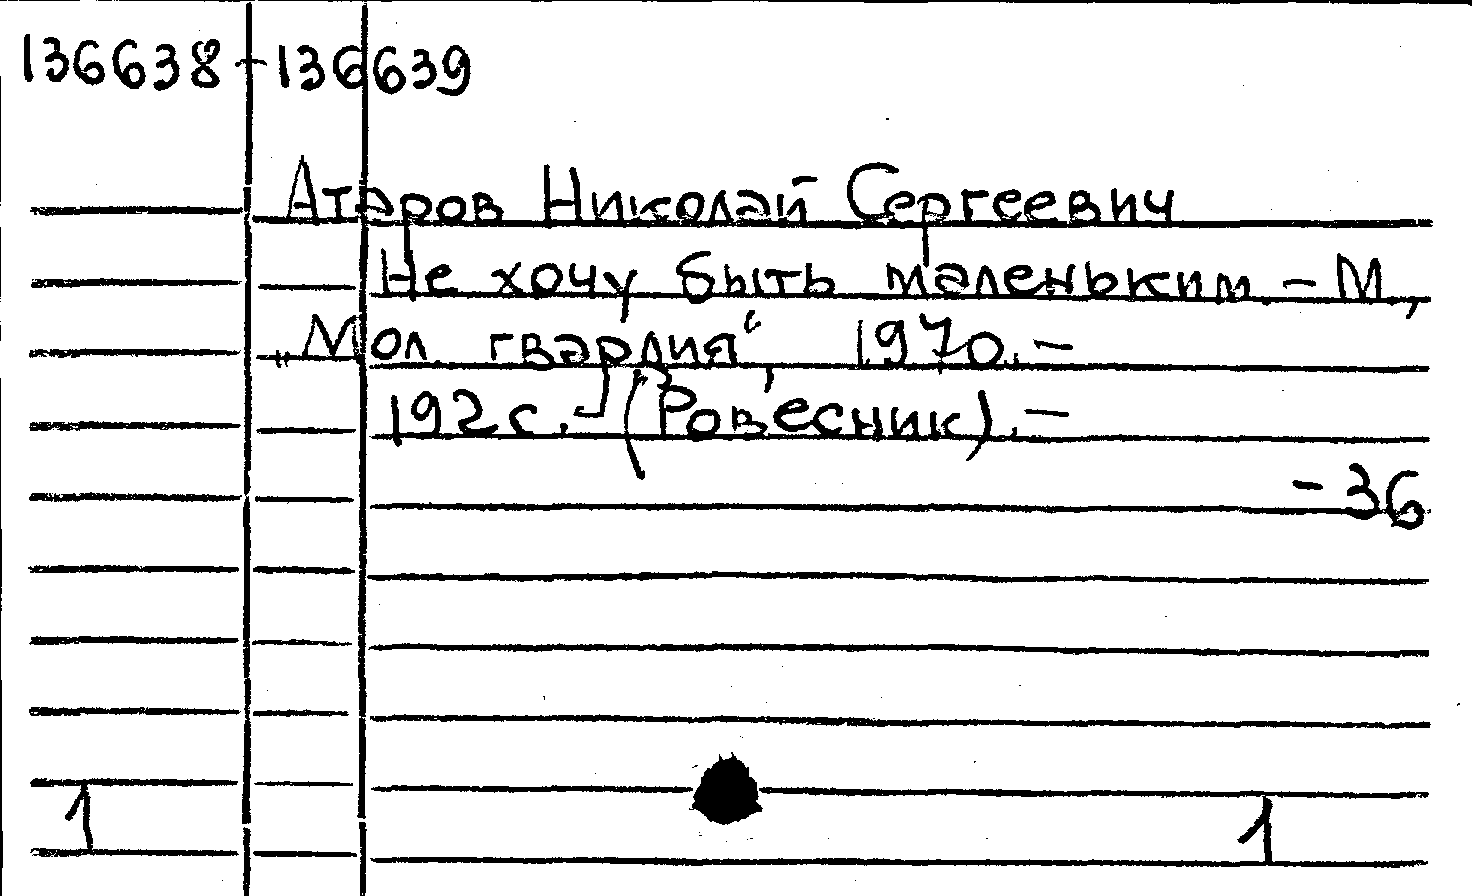 136638-136639
Атаров Николай Сергеевич
Не хочу быть маленьким. - М.,
„Мол. гвардия“, 1970. -
192 с. - (Ровесник). -
- 36
1 1